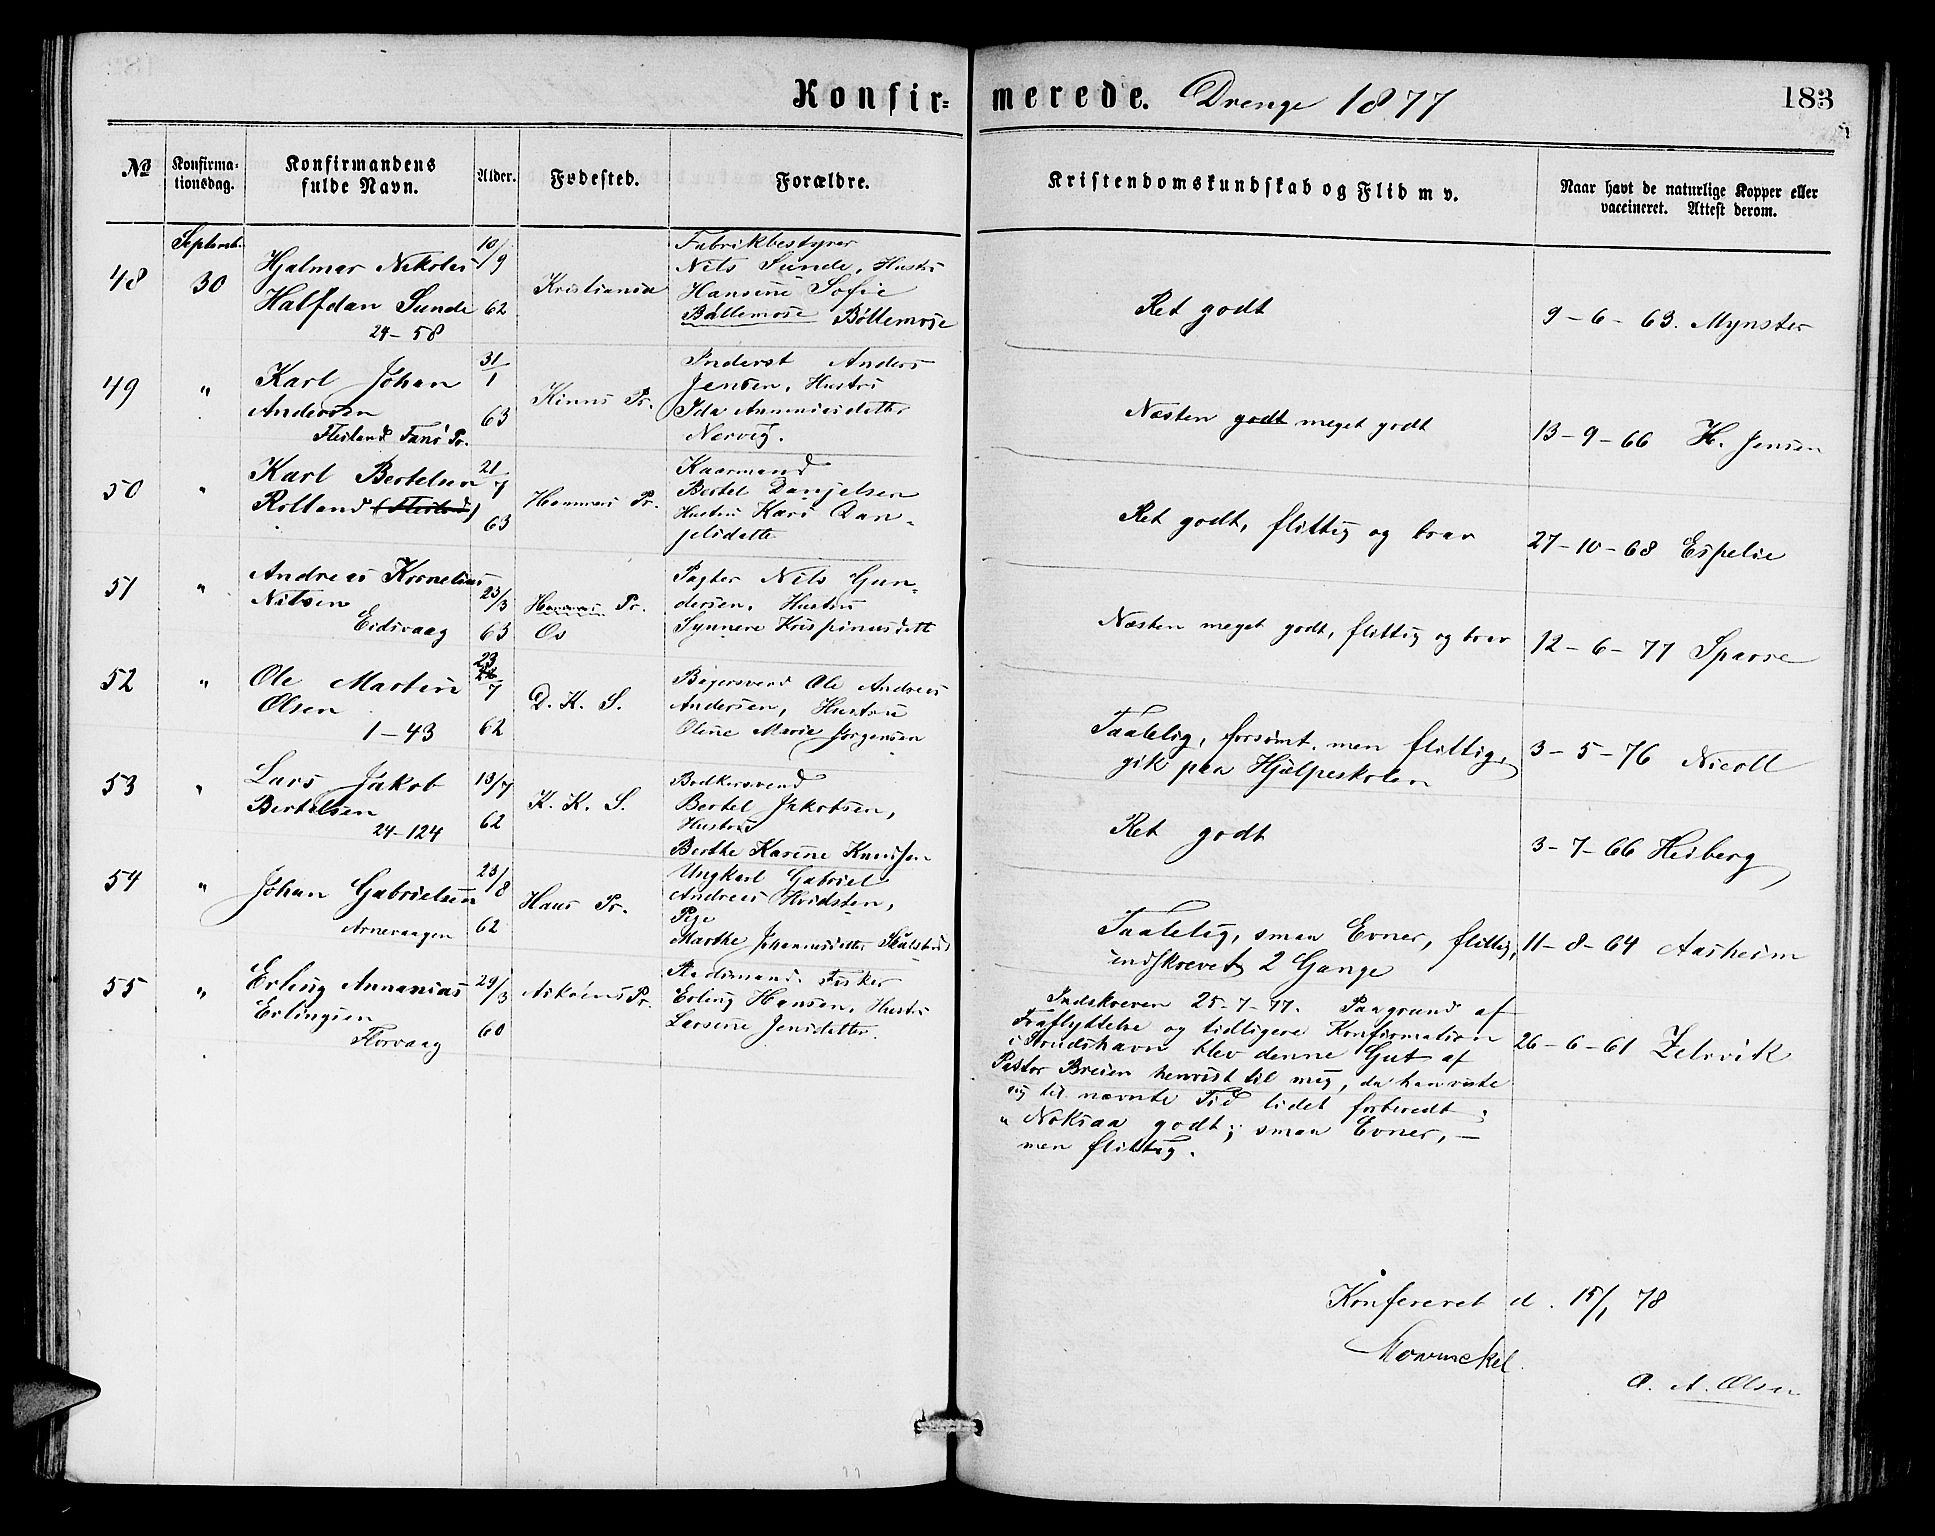 Konfir=
merede. Drenge 1877
183
No
Konfirma-
tionsdag.
Konfirmandens
fulde Navn.
Alder.
Fødested.
Forældre.
Kristendomskundskab og Flid m v.
Naar havt de naturlige Kopper eller
vaccineret. Attest derom.
Septemb.
48 30
Hjalmar Nikolai
Halfdan Sunde
24-58
10/9
62
Kristiania
Fabrikbestyrer
Nils Sunde, Hustru
Hansine Sofie
Bøllemose Bøllemose
Ret godt
9-6-63. Mynster
49 "
Karl Johan
Andersen
Flesland Fane Pr.
31/1
63
Kinns Pr.
Inderst Anders
Jensen, Hustru
Ida Annaniasdatter
Nervig.
Næsten godt meget godt
13-9-66 H. Jensen
50 "
Karl Bertelsen
Rolland (Flesland)
21/7
63
Hammers Pr.
Kaarmand
Bertel Danjelsen
Hustru Kari Dan-
jelsdatter
Ret godt, flittig og brav
27-10-68 Espelie
51 "
Andreas Kornelius
Nilsen
Eidsvaag
23/3
63
Hammers Pr.
Os
Pagter Nils Gun-
dersen. Hustru
Synneve Krispinusdatt
Næsten meget godt, flittig og brav
12-6-77 Sparre
52 "
Ole Martin
Olsen
1-43
23/7
62
D. K. S.
Bøgersvend Ole Andreas
Andersen, Hustru
Oline Marie Jørgensen
Taalelig, forsømt, men flittig,
gik paa Hjælpeskolen
3-5-76 Nicoll
53 "
Lars Jakob
Bertelsen
24-124
13/7
62
K. K. S.
Bødkersvend
Bertel Jakobsen,
Hustru
Berthe Karine Knudsen
Ret godt
3-7-66 Heiberg
54 "
Johan Gabrielsen
Arnevaagen
23/8
62
Haus Pr.
Ungkarl Gabriel
Andreas Hvidsten,
Pige
Marthe Johannesdatter
Taalelig, smaa Evner, flittig,
indskrevet 2 Gange
11-8-64 Aasheim
55 "
Erling Annanias
Erlingsen
Florvaag
29/3
60
Askøens Pr.
Fisker
Erling Hansen, Hustru
Larsine Jensdatter.
Indskreven 25-7-77. Paagrund af
Fraflyttelse og tidligere Konfirmation
i Sundshavn blev denne Gut af
Pastor Breien henvist til mig, da han viste
sig til nævnte Tid lidet forberedt
" Noksaa godt; smaa Evner, —
men flittig.
26-6-61 Zelvvik
Konfereret d. 15/1 78
Mowinckel.
O. A. Olsen